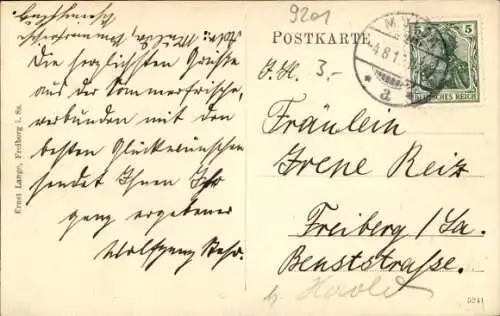 Die herzlichsten Grüße
aus der Sommerfrische,
verbunden mit den
besten Glückwünschen
sendet Ihnen Ihr
ganz ergebener
Wolfgang
Ernst Lange, Freiberg i. Sa.
9201
POSTKARTE
3,-
5
DEUTSCHES REICH
* a *
Fräulein
Irene Reiz
Freiberg / Sa.
Benststrasse.
5241